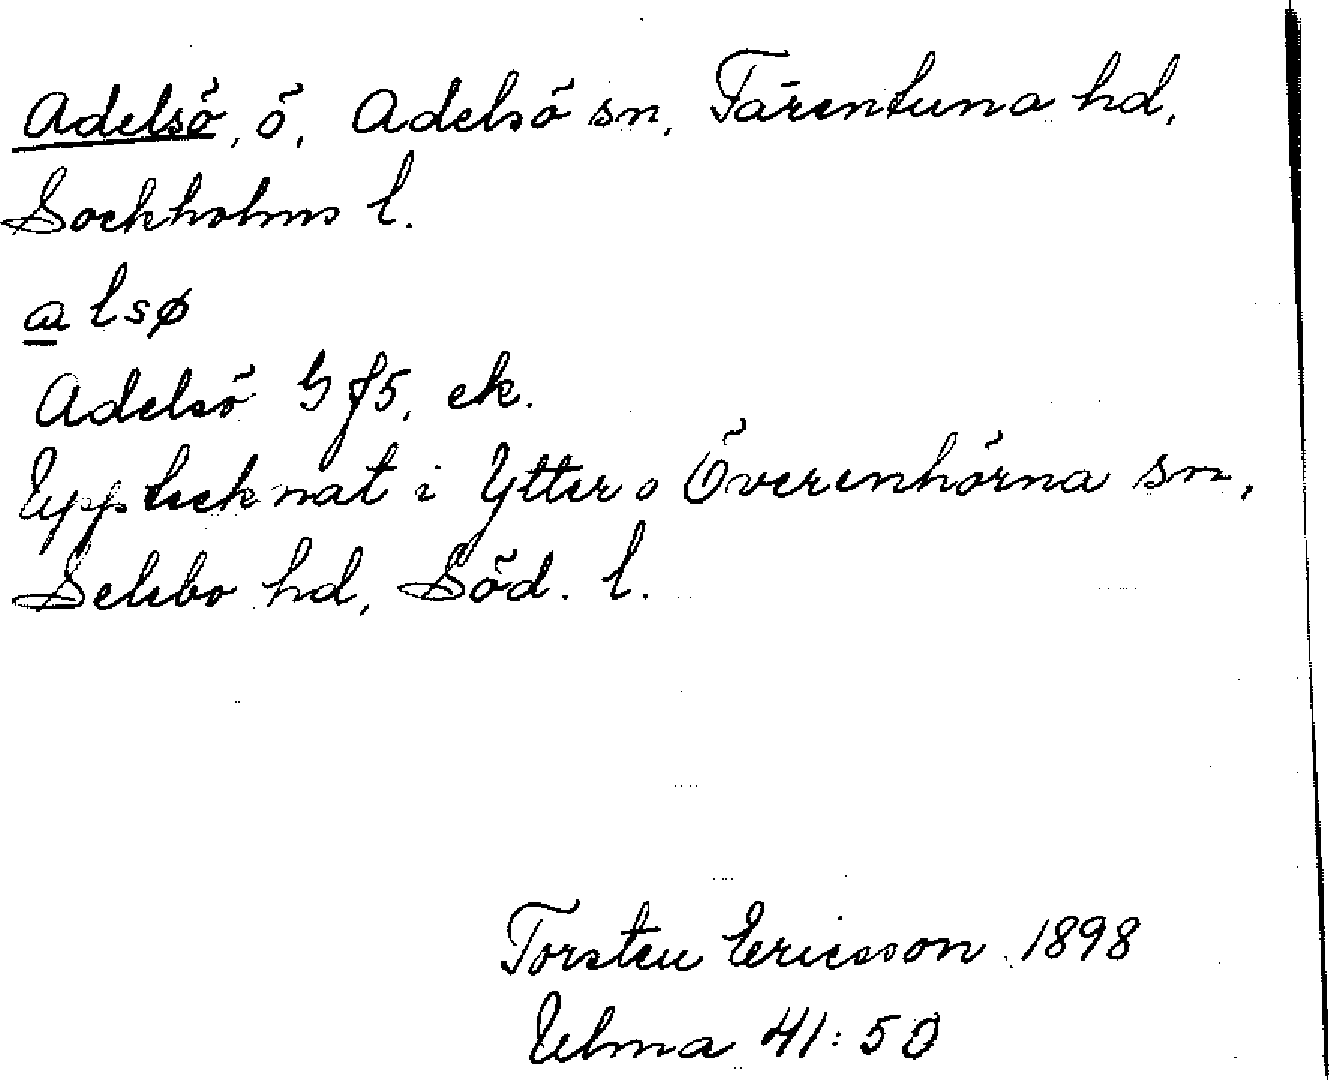 Adelsö, ö, Adelsö sn, Färentuna hd,
Sockholms l.
a lsø
Adelsö G f5, ek.
Upptecknat i Ytter o Överenhörna sn,
Selebo hd, Söd. l.
Torsten Ericsson 1898
Ulma 41:50